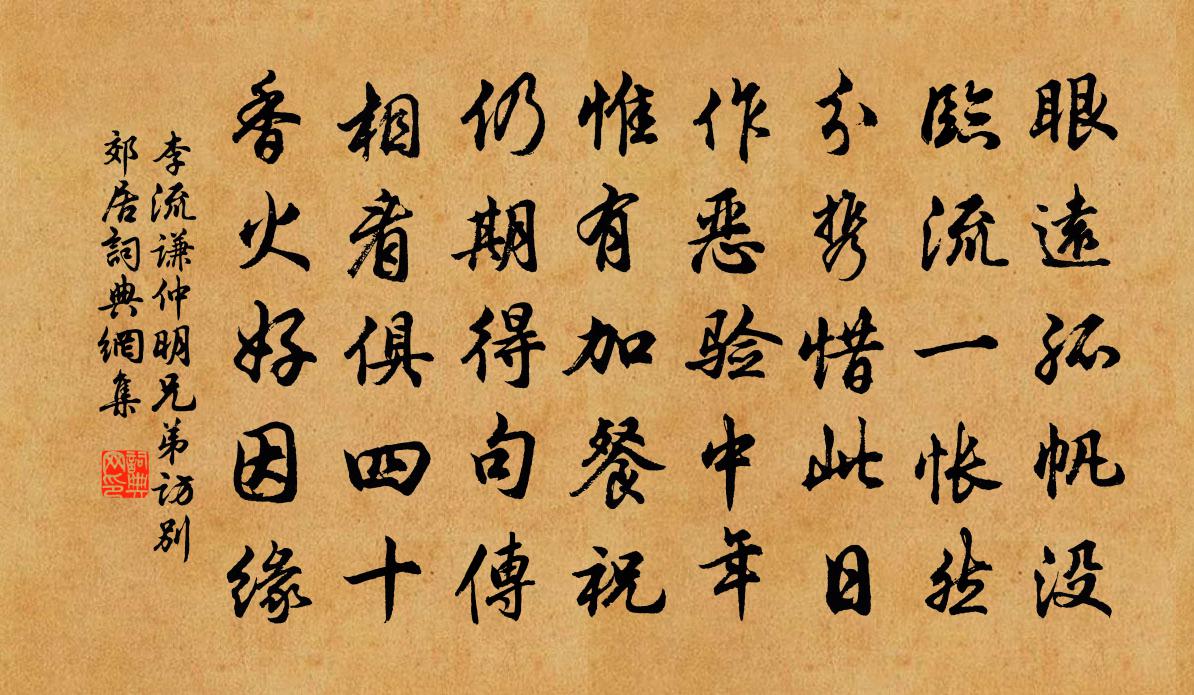 眼遠孤帆没
臨流一悵然
分携惜此日
作惡验中年
惟有加餐祝
仍期得句傳
相看俱四十
香火好因缘
李流謙仲明兄弟訪別
郊居詞典網集
詞典网印